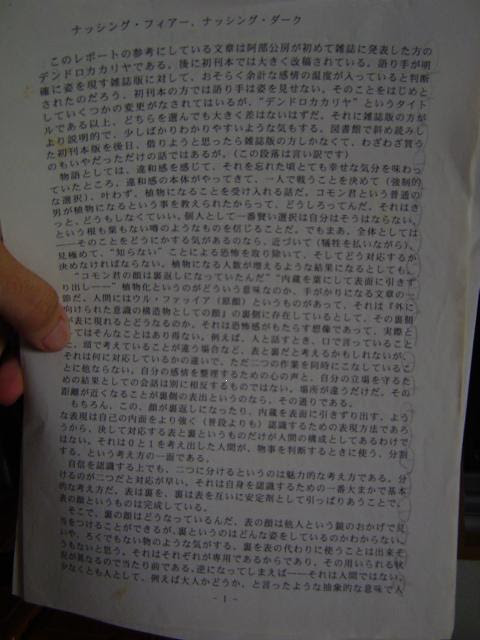 ナッシング・フィアー、ナッシング・ダーク
このレポートの参考にしている文章は阿部公房が初めて雑誌に発表した方の
デンドロカカリヤである。後に初刊本では大きく改稿されている。語り手が明
確に姿を現す雑誌版に対して、おそらく余計な感情の温度が入っていると判断
されたのだろう、初刊本の方では語り手は姿を見せない。そのことをはじめと
していくつかの変更がなされてはいるが、"デンドロカカリヤ"というタイト
ルである以上、どちらを選んでも大きく差はないはずだ。それに雑誌版の方が
より説明的で、少しばかりわかりやすいような気もする。図書館で斜め読みし
た初刊本版を後日、借りようと思ったら雑誌版の方しかなくて、わざわざ買う
のもいやだっただけの話ではあるが。(この段落は言い訳です)
物語としては、違和感を感じて、それを忘れた頃とても幸せな気分を味わっ
ていたところ、違和感の本体がやってきて、一人で戦うことを決めて(強制的
な選択)、叶わず、植物になることを受け入れる話だ。コモン君という普通の
男が植物になるという事を教えられたからって、どうしろってんだ。それはき
っと、どうもしなくていい。個人として一番賢い選択は自分はそうはならない、
という根も葉もない噂のようなものを信じることだ。でもまあ、全体としては
――そのことをどうにかする気があるのなら、近づいて(犠牲を払いながら)、
見極めて、"知らない"ことによる恐怖を取り除いて、そしてどう対応するか
決めなければならない。植物になる人数が増えるような結果になるとしても。
"コモン君の顔は裏返しになっていたんだ""内蔵を葉にして表面に引きず
り出し――"植物化というのがどういう意味なのか、手がかりになる文章の一
節だ。人間にはウル・ファッイア(原顔)というものがあって、それは『外に
向けられた意識の構造物としての顔』の裏側に存在しているとして、その裏側
が表に現れるとどうなるのか。それは恐怖感がもたらす想像であって、実際と
してはそんなことはあり得ない。例えば、人と話すとき、口で言っていること
と、頭で考えていることが違う場合など、表と裏だと考えるかもしれないが、
それは何に対応しているかの違いで、ただ二つの作業を同時にこなしているこ
とに他ならない。自分の感情を整理するための心の声と、自分の立場を守るた
めの結果としての会話は別に相反するものではない。場所が違うだけだ。その
距離が近くなることが裏側の表出というのなら、その通りである。
もちろん、この、顔が裏返しになったり、内蔵を表面に引きずり出す、よう
な表現は自己の内面をより強く(普段よりも)認識するための表現方法であろ
うから、決して対応する表と裏というものだけが人間の構成としてあるわけで
はない。それは0と1を考え出した人間が、物事を判断するときに使う、分割
する、という考え方の一面である。
自信を認識する上でも、二つに分けるというのは魅力的な考え方である。分
けるのが二つだと対応が早い。それは自身を認識するための一番大まかで基本
的な考え方だ。表は裏を、裏は表を互いに安定剤として引っぱりあうことで、
表の顔というものは完成している。
そこで、裏の顔はどうなっているんだ。表の顔は他人という鏡のおかげで見
当をつけることができるが、裏というのはどんな姿をしているのかわからない。
いや、ろくでもない物のような気がする。裏を表の代わりに使うことは出来そ
うもないと思う。それはそれぞれが専用であるからであり、その用いられる状
況が異なるので当たり前である。逆になってしまえば――それは人間ではない。
少なくとも人として、例えば大人かどうか、と言ったような抽象的な意味で人
- 1 -